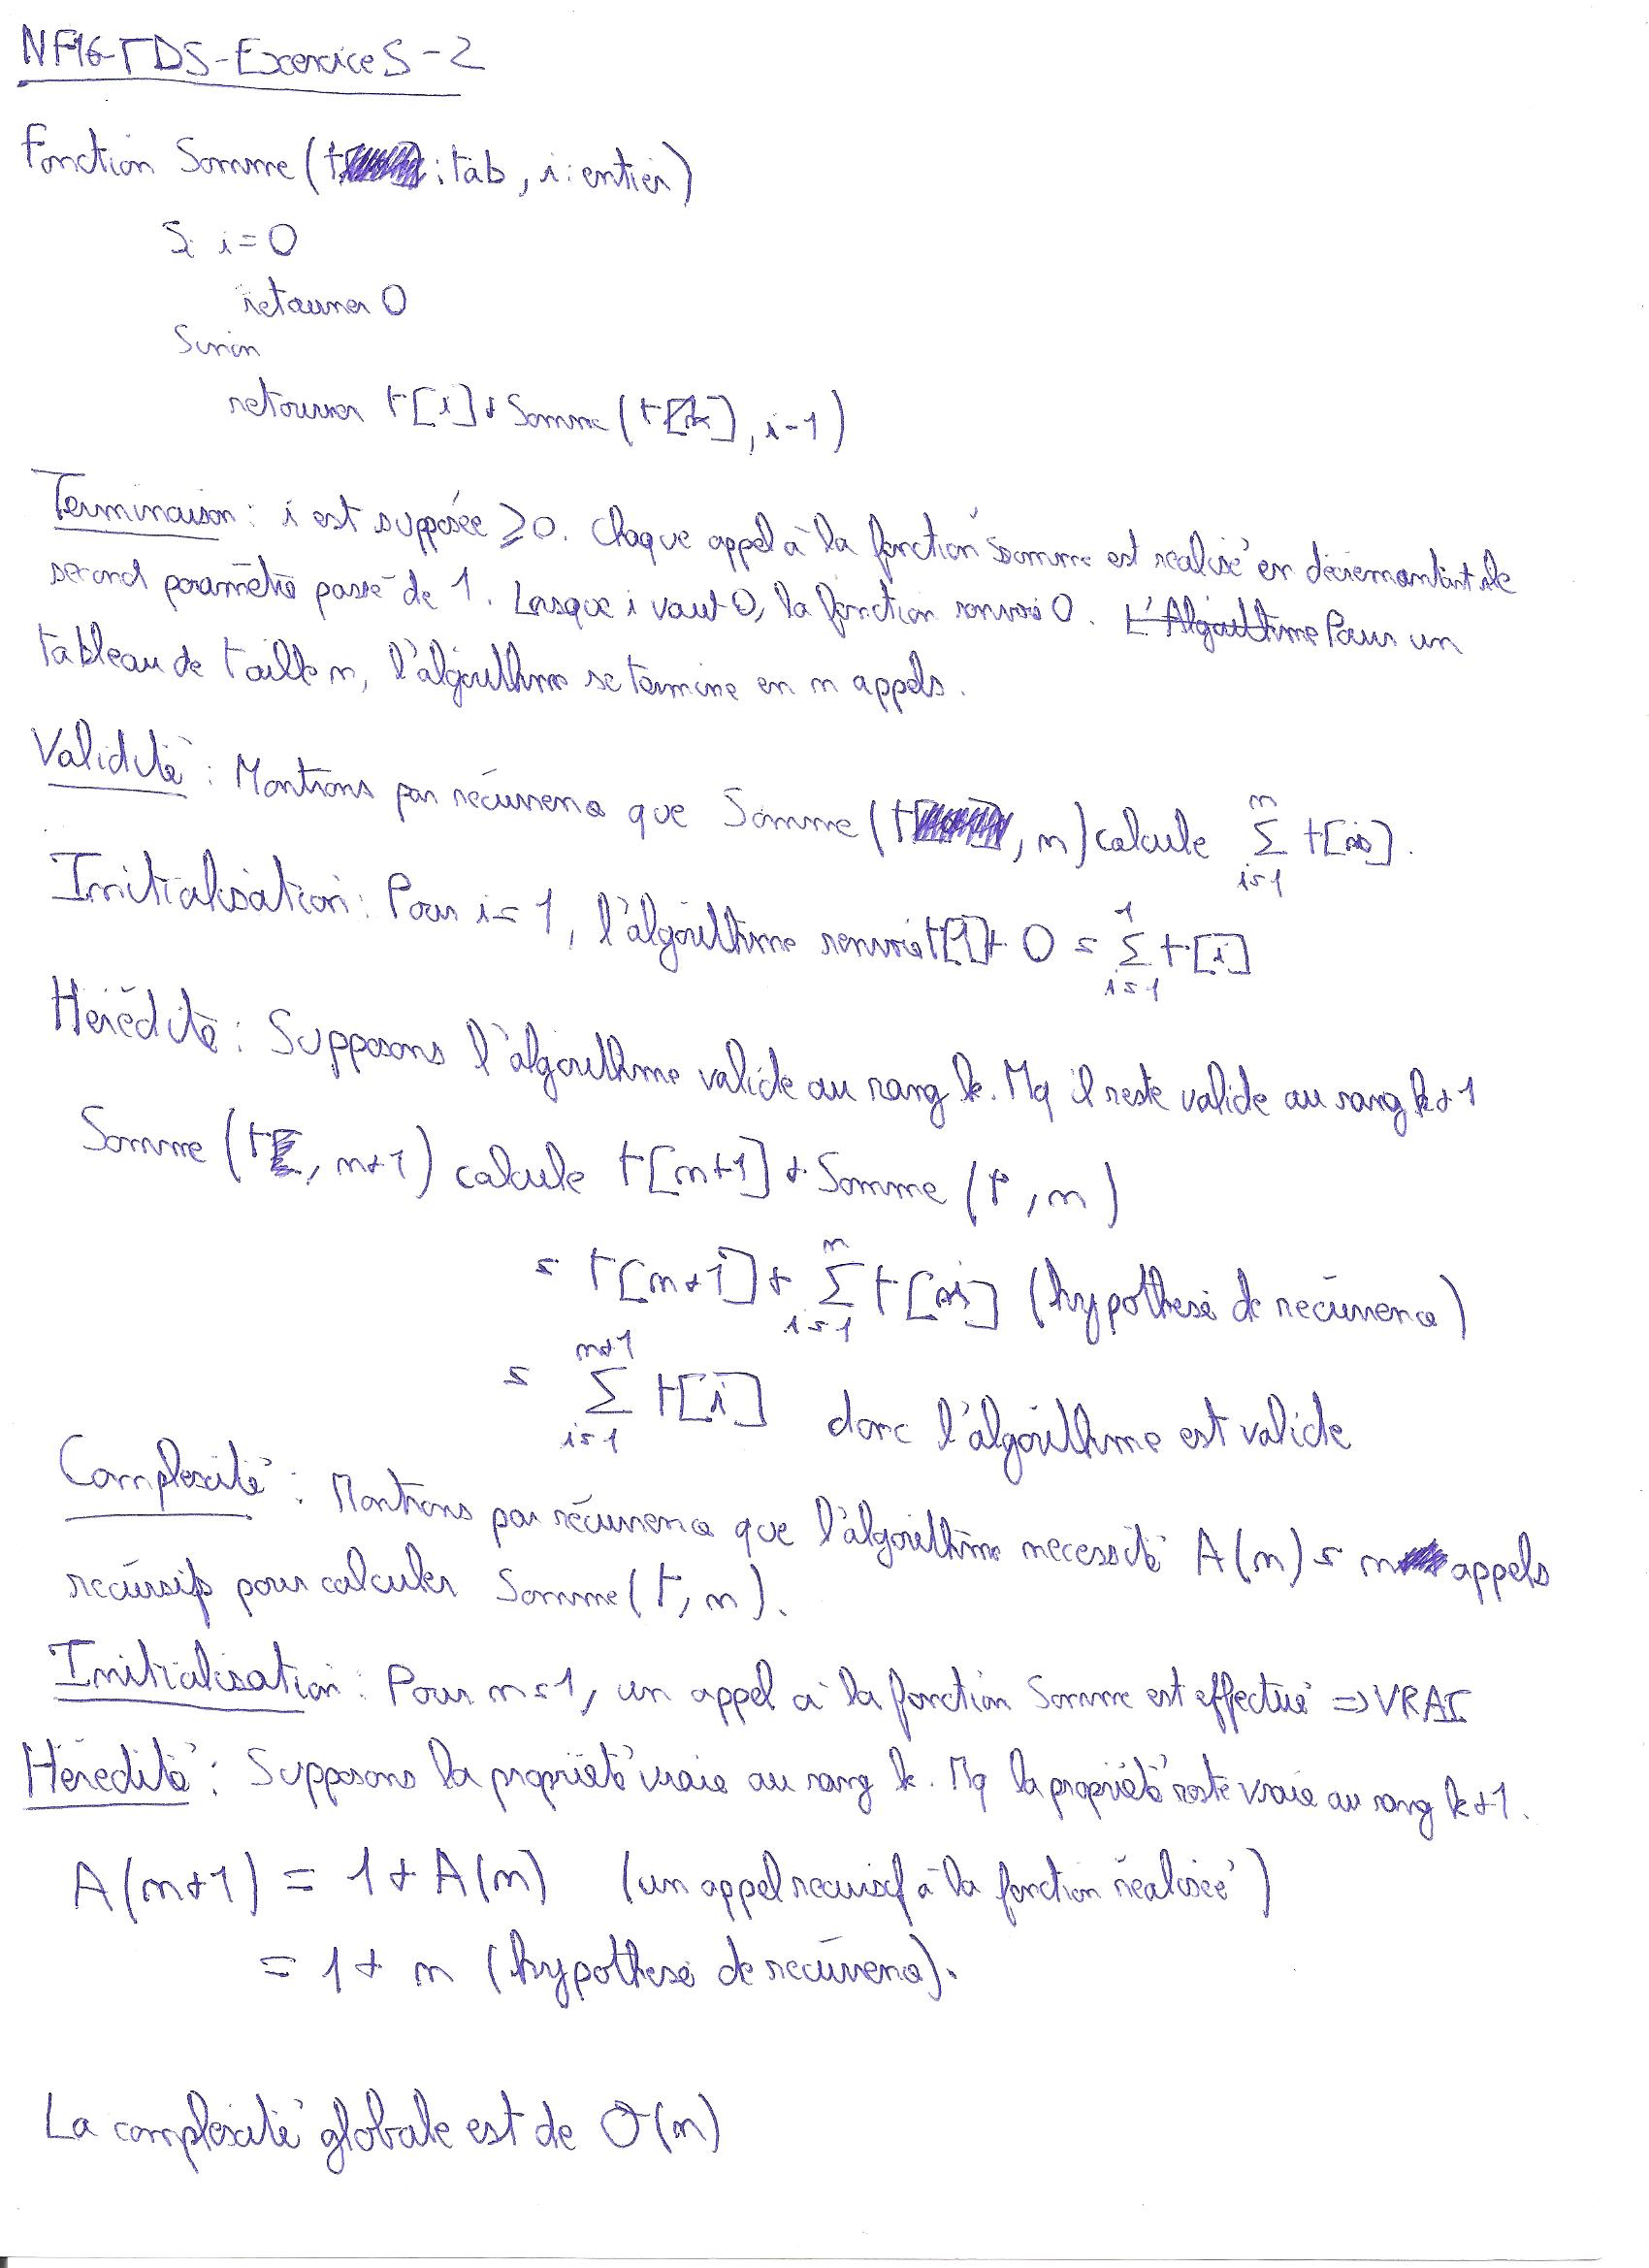 NF16-TD5-Exercice 5-2
Fonction Somme (t : tab, i : entier)
Si i = 0
retourner 0
Sinon
retourner t[i] + Somme (t[k], i-1)
Terminaison : i est supposée ≥ 0. Chaque appel à la fonction somme est réalisé en décrémentant le
second paramètre passé de 1. Lorsque i vaut 0, la fonction renvoie 0. L'Algorithme Pour un
tableau de taille n, l'algorithme se termine en n appels.
Validité : Montrons par récurrence que Somme (t, n) calcule
n
Σ t[i].
i=1
Initialisation : Pour i = 1, l'algorithme renvoie t[1] + 0 =
1
Σ t[i]
i=1
Hérédité : Supposons l'algorithme valide au rang k. Mq il reste valide au rang k+1
Somme (t, n+1) calcule t[n+1] + Somme (t, n)
n
= t[n+1] + Σ t[i] (hypothèse de récurrence)
i=1
n+1
= Σ t[i] donc l'algorithme est valide
i=1
Complexité : Montrons par récurrence que l'algorithme nécessite A(n) = n appels
récursifs pour calculer Somme (t, n).
Initialisation : Pour n = 1, un appel à la fonction Somme est effectué => VRAI
Hérédité : Supposons la propriété vraie au rang k. Mq la propriété reste vraie au rang k+1.
A(n+1) = 1 + A(n) (un appel récursif à la fonction réalisée)
= 1 + n (hypothèse de récurrence).
La complexité globale est de O(n)